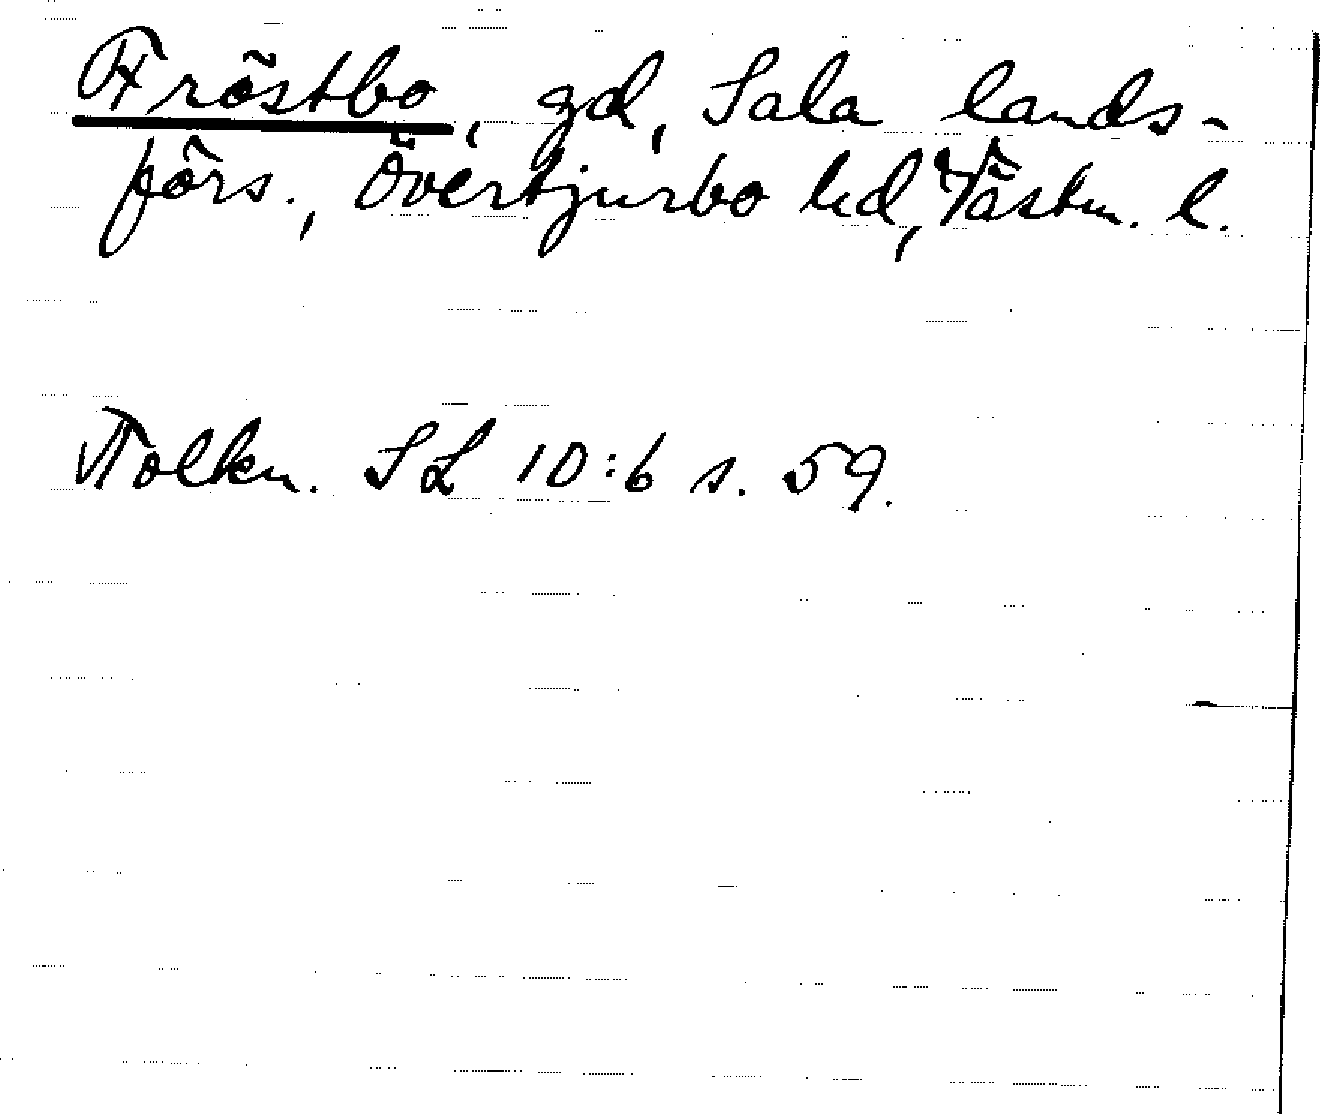 Fröstbo, gd, Sala lands-
förs., Övertjurbo hd, Västm. l.
Tolkn. SL 10:6 s. 59.